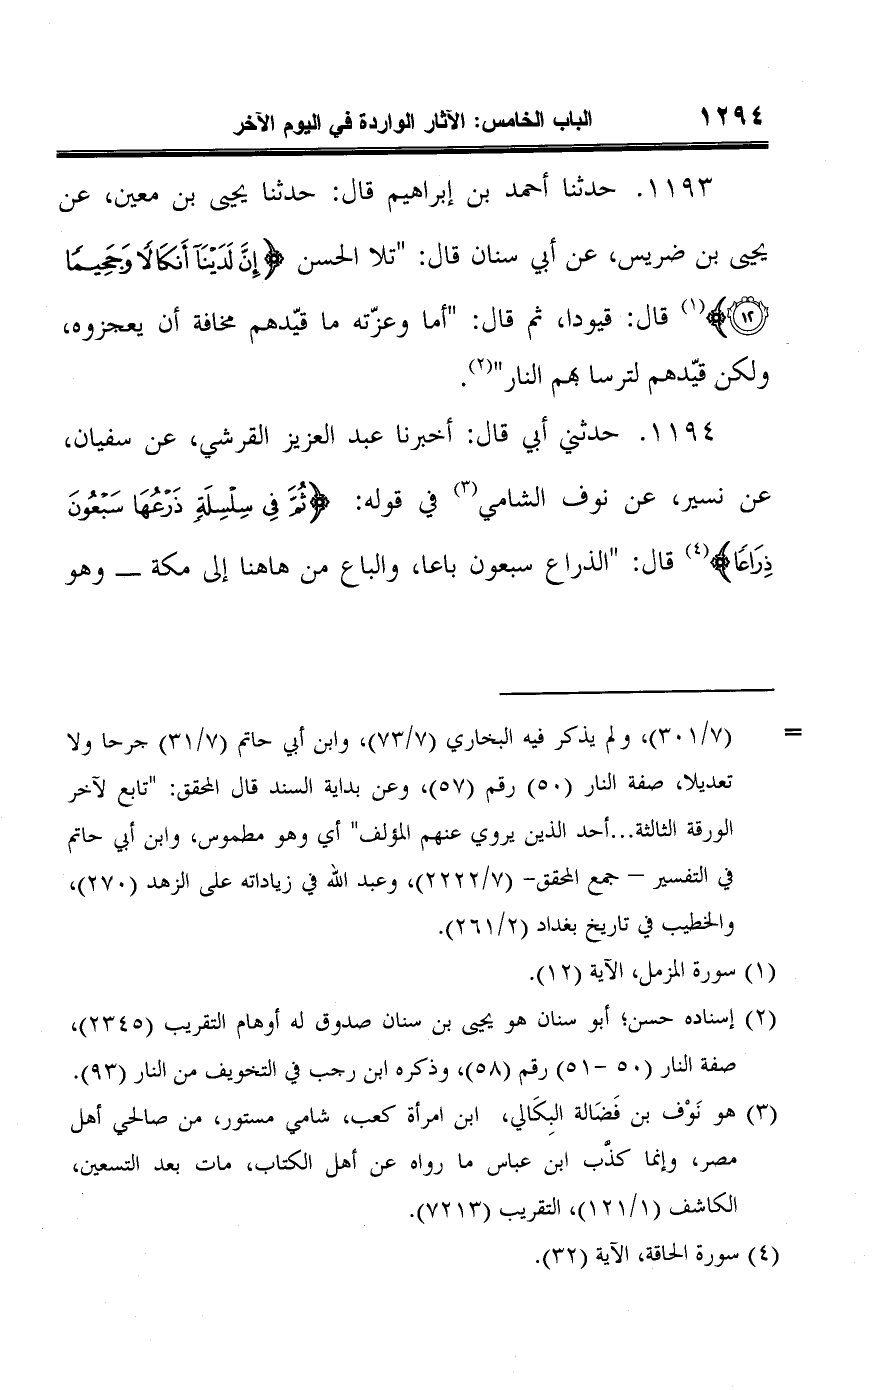 ١٢٩٤ الباب الخامس: الآثار الواردة في اليوم الآخر
١١٩٣. حدثنا أحمد بن إبراهيم قال: حدثنا يحيى بن معين، عن
يحيى بن ضريس، عن أبي سنان قال: "تلا الحسن ﴿إِنَّ لَدَيْنَآ أَنكَالًا وَجَحِيمًا
١٢﴾(١) قال: قيودا، ثم قال: "أما وعزّته ما قيّدهم مخافة أن يعجزوه،
ولكن قيّدهم لترسا بهم النار"(٢).
١١٩٤. حدثني أبي قال: أخبرنا عبد العزيز القرشي، عن سفيان،
عن نسير، عن نوف الشامي(٣) في قوله: ﴿ثُمَّ فِي سِلْسِلَةٍ ذَرْعُهَا سَبْعُونَ
ذِرَاعًا﴾(٤) قال: "الذراع سبعون باعا، والباع من هاهنا إلى مكة ــ وهو
= (٣٠١/٧)، ولم يذكر فيه البخاري (٧٣/٧)، وابن أبي حاتم (٣١/٧) جرحا ولا
تعديلا، صفة النار (٥٠) رقم (٥٧)، وعن بداية السند قال المحقق: "تابع لآخر
الورقة الثالثة...أحد الذين يروي عنهم المؤلف" أي وهو مطموس، وابن أبي حاتم
في التفسير – جمع المحقق- (٢٢٢٢/٧)، وعبد الله في زياداته على الزهد (٢٧٠)،
والخطيب في تاريخ بغداد (٢٦١/٢).
(١) سورة المزمل، الآية (١٢).
(٢) إسناده حسن؛ أبو سنان هو يحيى بن سنان صدوق له أوهام التقريب (٢٣٤٥)،
صفة النار (٥٠ -٥١) رقم (٥٨)، وذكره ابن رجب في التخويف من النار (٩٣).
(٣) هو نَوْف بن فَضَالة البِكَالي، ابن امرأة كعب، شامي مستور، من صالحي أهل
مصر، وإنما كذَّب ابن عباس ما رواه عن أهل الكتاب، مات بعد التسعين،
الكاشف (١٢١/١)، التقريب (٧٢١٣).
(٤) سورة الحاقة، الآية (٣٢).